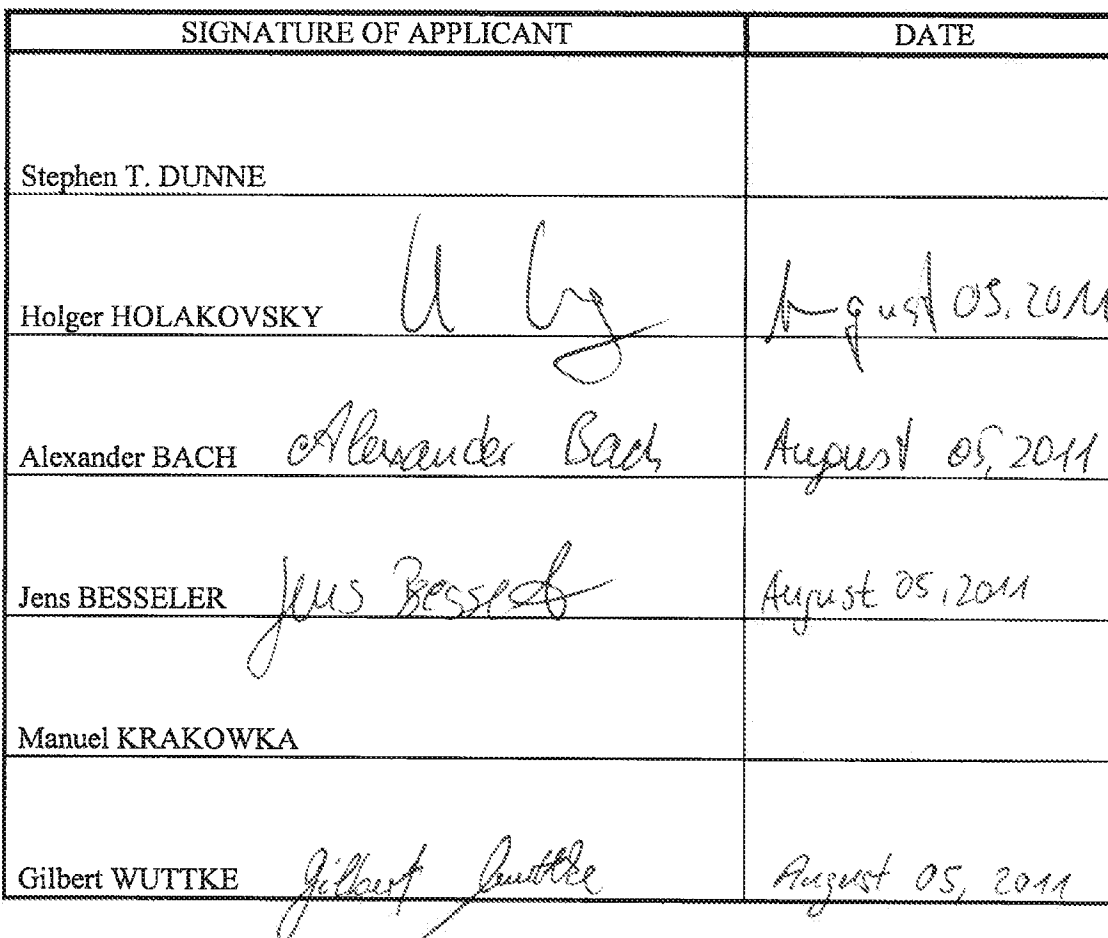 SIGNATURE OF APPLICANT DATE
Stephen T. DUNNE
Holger HOLAKOVSKY August 05, 2011
Alexander BACH Alexander Bach August 05, 2011
Jens BESSELER Jens Besseler August 05, 2011
Manuel KRAKOWKA
Gilbert WUTTKE Gilbert Wuttke August 05, 2011